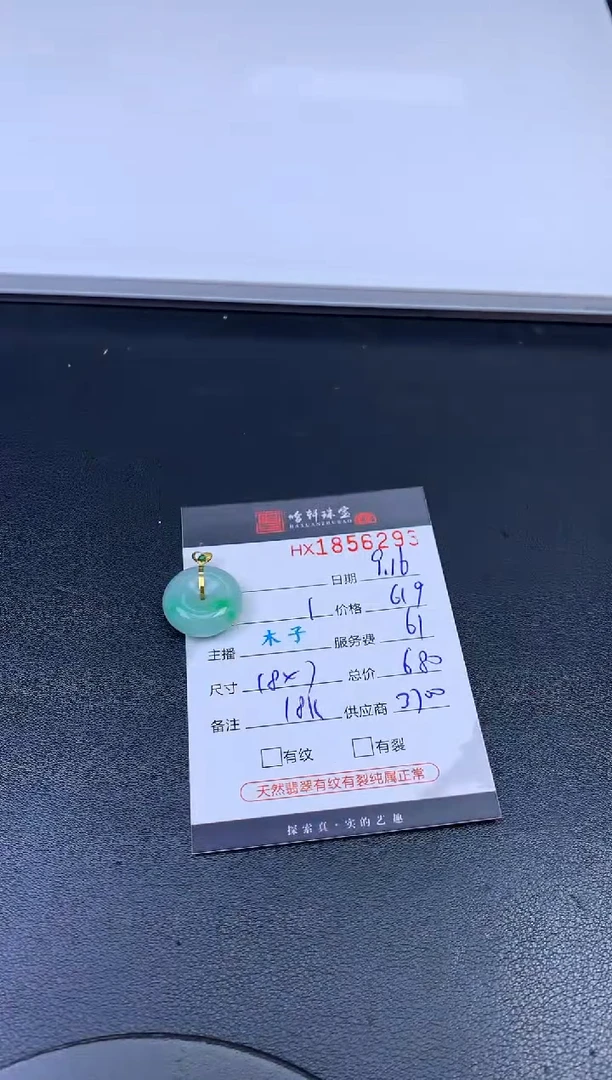 哈轩珠宝
HAXUANZHUBAO
HX1856293
日期 9.16
1 价格 619
主播 木子 服务费 61
尺寸 18×7 总价 680
备注 18K 供应商 3700
有纹 有裂
天然翡翠有纹有裂纯属正常
探索真·实的艺趣